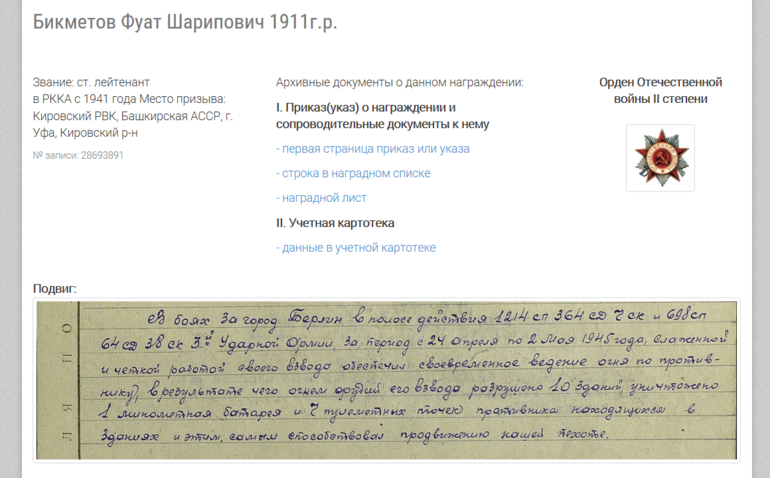 Бикметов Фуат Шарипович 1911г.р.
Звание: ст. лейтенант
в РККА с 1941 года Место призыва:
Кировский РВК, Башкирская АССР, г.
Уфа, Кировский р-н
№ записи: 28693891
Архивные документы о данном награждении:
I. Приказ(указ) о награждении и
сопроводительные документы к нему
- первая страница приказ или указа
- строка в наградном списке
- наградной лист
II. Учетная картотека
- данные в учетной картотеке
Орден Отечественной
войны II степени
Подвиг:
В боях за город Берлин в полосе действия 1214 сп 364 СД 7 ск и 698 сп
64 СД 38 ск 3й Ударной Армии, за период с 24 Апреля по 2 Мая 1945 года, слаженной
и четкой работой своего взвода обеспечил своевременное ведение огня по против-
нику, в результате чего огнем орудий его взвода разрушено 10 зданий, уничтожено
1 минометная батарея и 7 пулеметных точек противника находящихся в
зданиях и этим самым способствовал продвижению нашей пехоты.
О
П
Я
Л